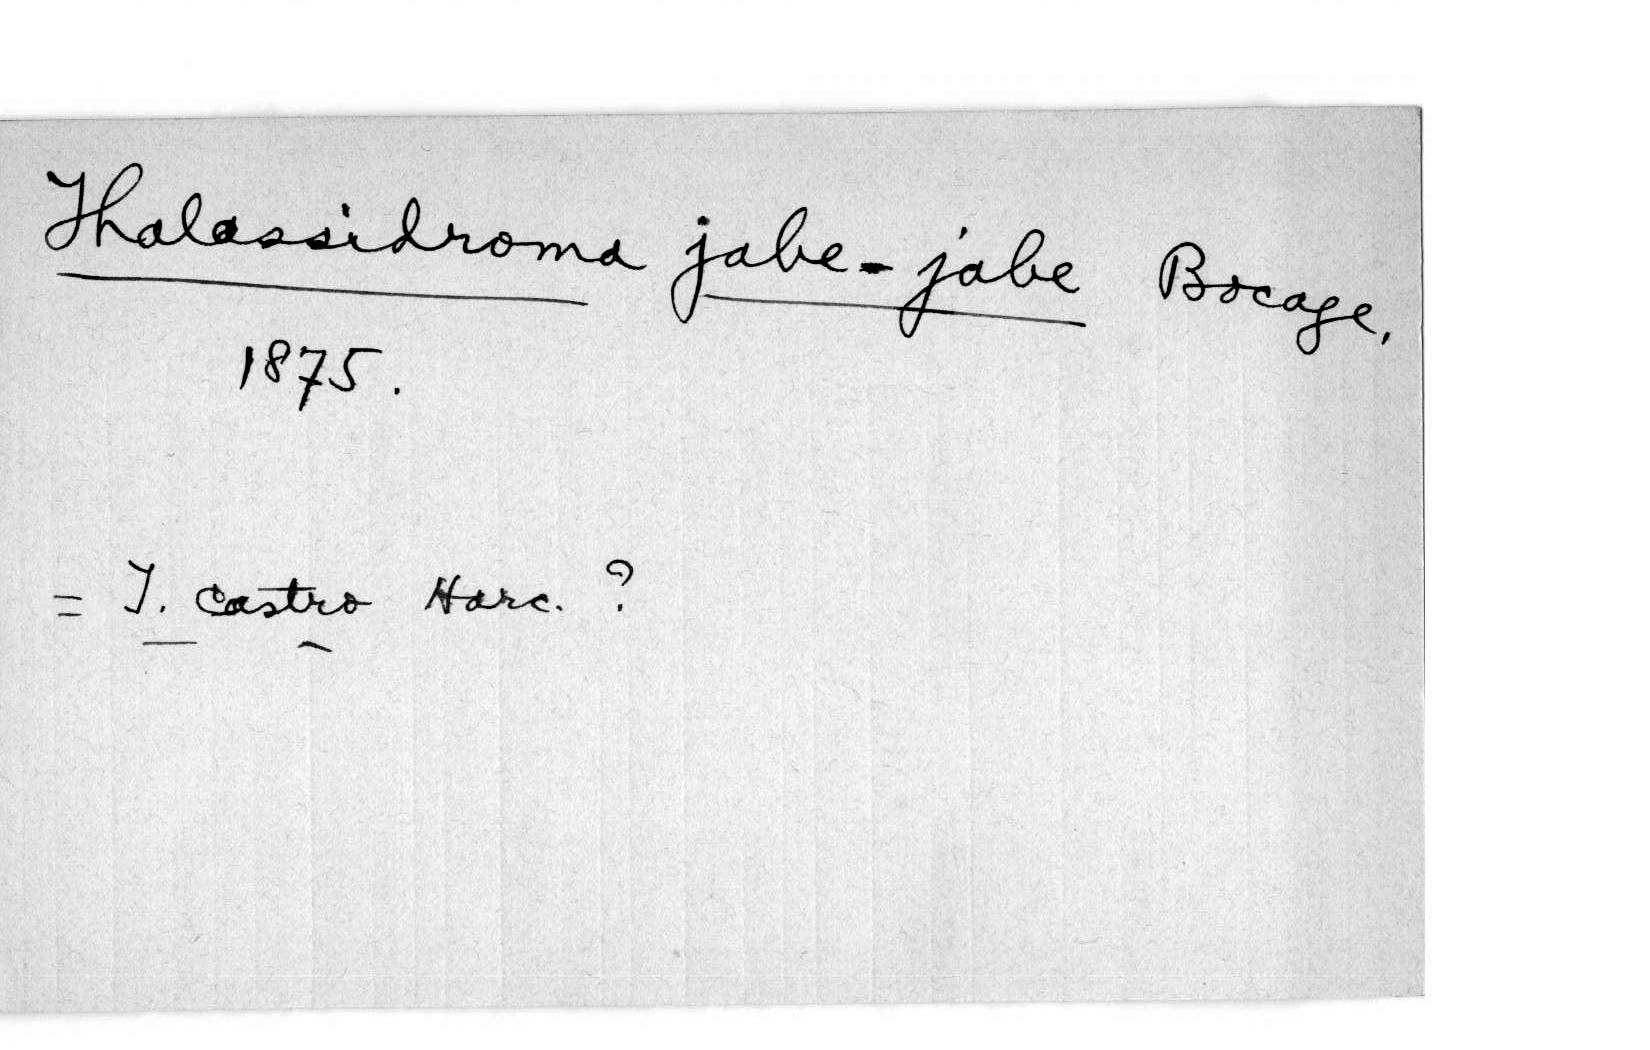 Thalassidroma jabe-jabe Bocage,
1875.
= T. castro Harc. ?